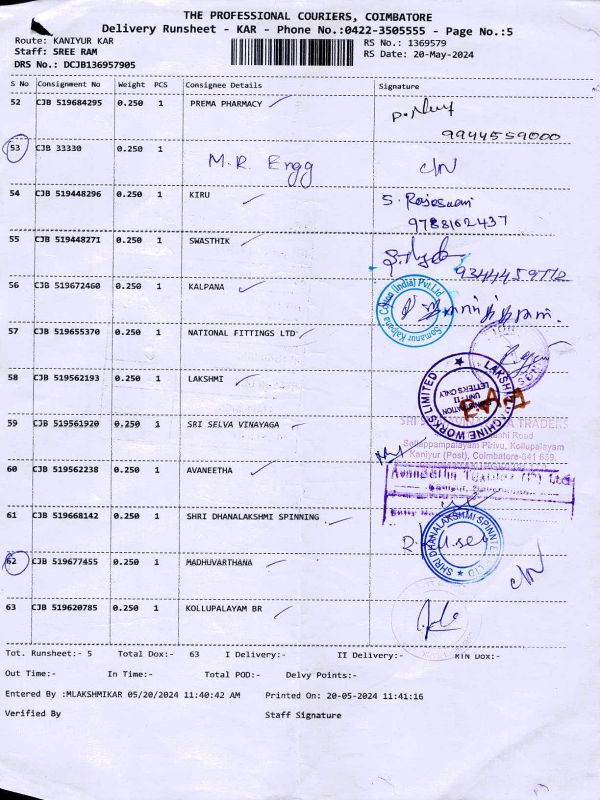 THE PROFESSIONAL COURIERS, COIMBATORE
Delivery Runsheet - KAR - Phone No.:0422-3505555 - Page No.:5
Route: KANIYUR KAR
Staff: SREE RAM
DRS No.: DCJB136957905
RS No.: 1369579
RS Date: 20-May-2024
S No Consignment No Weight PCS Consignee Details Signature
52 CJB 519684295 0.250 1 PREMA PHARMACY
9944559000
53 CJB 33330 0.250 1 M.R. Engg C/N
54 CJB 519448296 0.250 1 KIRU S. Rajeswari
9788162437
55 CJB 519448271 0.250 1 SWASTHIK
56 CJB 519672460 0.250 1 KALPANA
(India) Pvt.Ltd
Somanur Kalpana
57 CJB 519655370 0.250 1 NATIONAL FITTINGS LTD
58 CJB 519562193 0.250 1 LAKSHMI
LAKSHMI MACHINE WORKS LIMITED
UNIT-II
LETTERS ONLY
59 CJB 519561920 0.250 1 SRI SELVA VINAYAGA
TRADERS
Road
Pirivu, Kollupalayam
Kaniyur (Post), Coimbatore-641 659.
60 CJB 519562238 0.250 1 AVANEETHA
61 CJB 519668142 0.250 1 SHRI DHANALAKSHMI SPINNING
SHRI DHANALAKSHMI SPINNTEX
62 CJB 519677455 0.250 1 MADHUVARTHANA C/N
63 CJB 519620785 0.250 1 KOLLUPALAYAM BR
Tot. Runsheet:- 5 Total Dox:- 63 I Delivery:- II Delivery:- RTN Dox:-
Out Time:- In Time:- Total POD:- Delvy Points:-
Entered By :MLAKSHMIKAR 05/20/2024 11:40:42 AM Printed On: 20-05-2024 11:41:16
Verified By Staff Signature